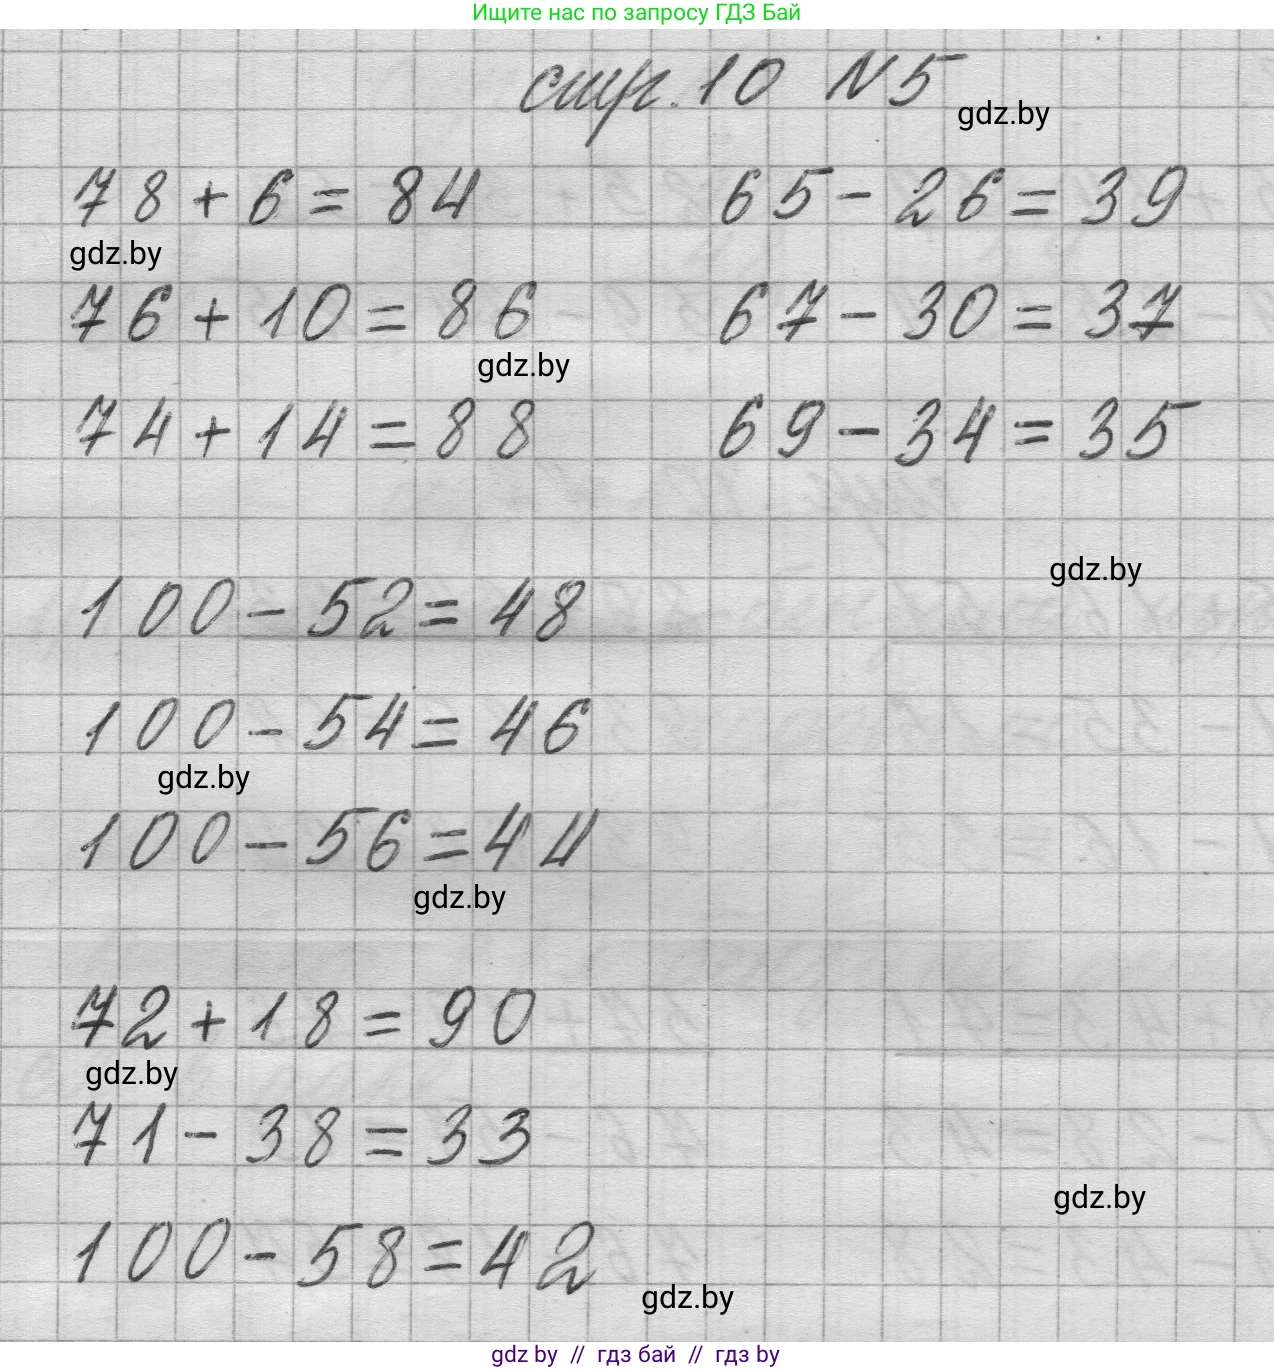 Ищите нас по запросу ГДЗ Бай
стр. 10 №5
gdz.by
78+6=84 65-26=39
gdz.by
76+10=86 67-30=37
gdz.by
74+14=88 69-34=35
gdz.by
100-52=48
100-54=46
gdz.by
100-56=44
gdz.by
72+18=90
gdz.by
71-38=33
gdz.by
100-58=42
gdz.by
gdz by // гдз бай // гдз by